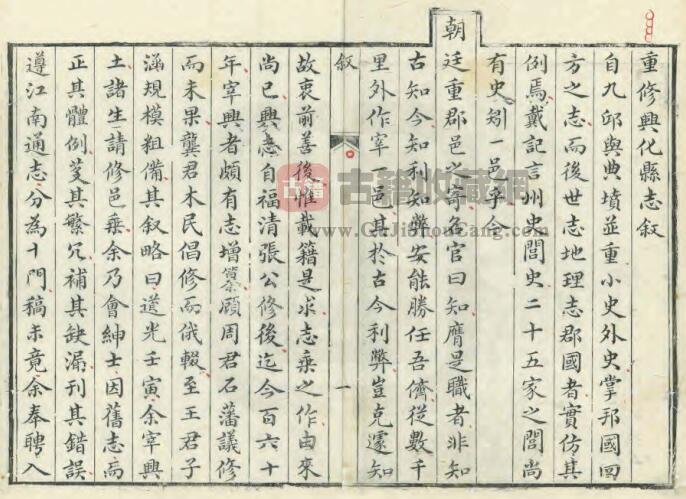 重修興化縣志叙
自九邱與典墳並重小史外史掌邦國四
方之志而後世志地理志郡國者實仿其
例焉戴記言州史閭史二十五家之閭尚
有史矧一邑乎今
朝廷重郡邑之寄名官曰知膺是職者非知
古知今知利知弊安能勝任吾儕從數千
里外作宰一邑其於古今利弊豈克遽知
叙
一
故衷前善後惟載籍是求志乘之作由來
尚已興志自福清張公修後迄今百六十
年宰興者頗有志增纂顧周君石藩議修
而未果龔君木民倡修而俄輟至王君子
涵規模粗備其叙略曰道光壬寅余宰興
土諸生請修邑乘余乃會紳士因舊志而
正其體例芟其繁冗補其缺漏刊其錯誤
遵江南通志分為十門稿未竟余奉聘入
古籍
古籍收藏網
www.GuJiShouCang.com